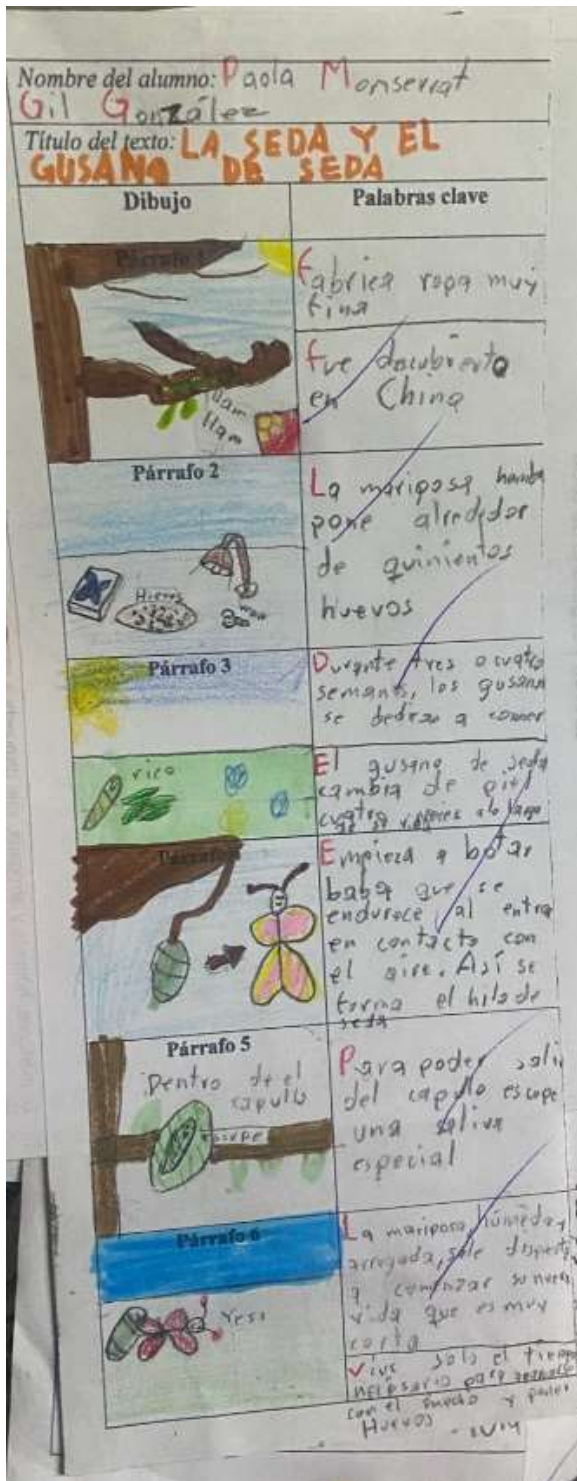 Nombre del alumno: Paola Monserrat
Gil González
Título del texto: LA SEDA Y EL
GUSANO DE SEDA
Dibujo
Palabras clave
Párrafo 1
ñam
ñam
Fabrica ropa muy
fina
Fue descubierto
en China
Párrafo 2
La mariposa hembra
pone alrededor
de quinientos
huevos
Párrafo 3
rico
Durante tres o cuatro
semanas, los gusanos
se dedican a comer
El gusano de seda
cambia de piel
cuatro veces a lo largo
Empieza a botar
baba que se
endurece al entrar
en contacto con
el aire. Así se
forma el hilo de
seda
Párrafo 5
Dentro de el
capullo
escupe
Para poder salir
del capullo escupe
una saliva
especial
Párrafo 6
Yes!
La mariposa, húmeda y
arrugada, sale dispuesta
a comenzar su nueva
vida que es muy
corta
Vive solo el tiempo
necesario para
con el macho y poner
Huevos